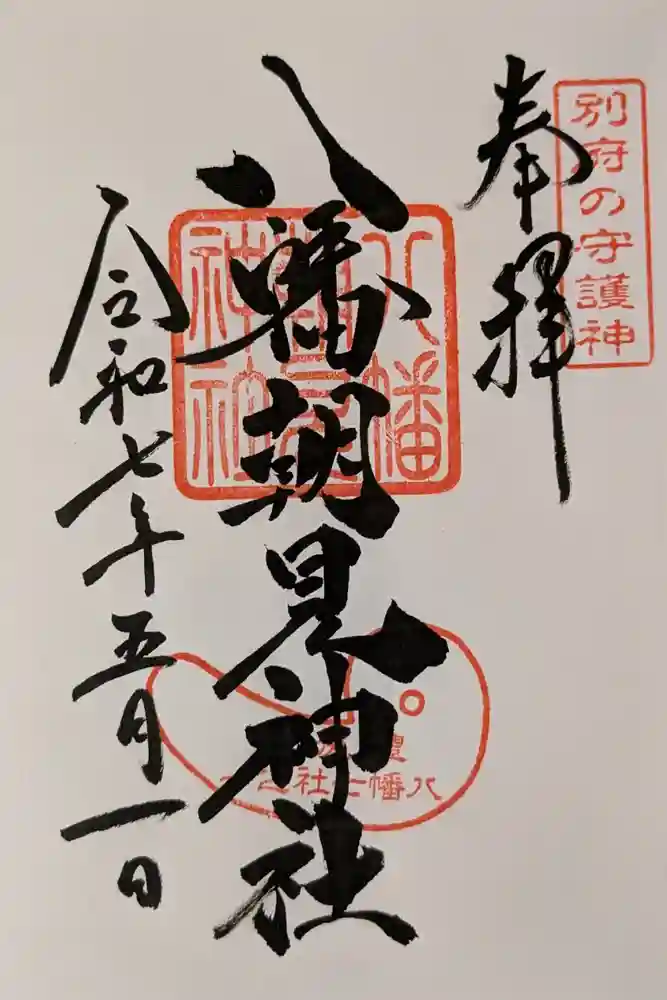 別府の守護神
奉拝
八幡朝見神社
八幡
神社
令和七年五月一日
豊
八幡七社